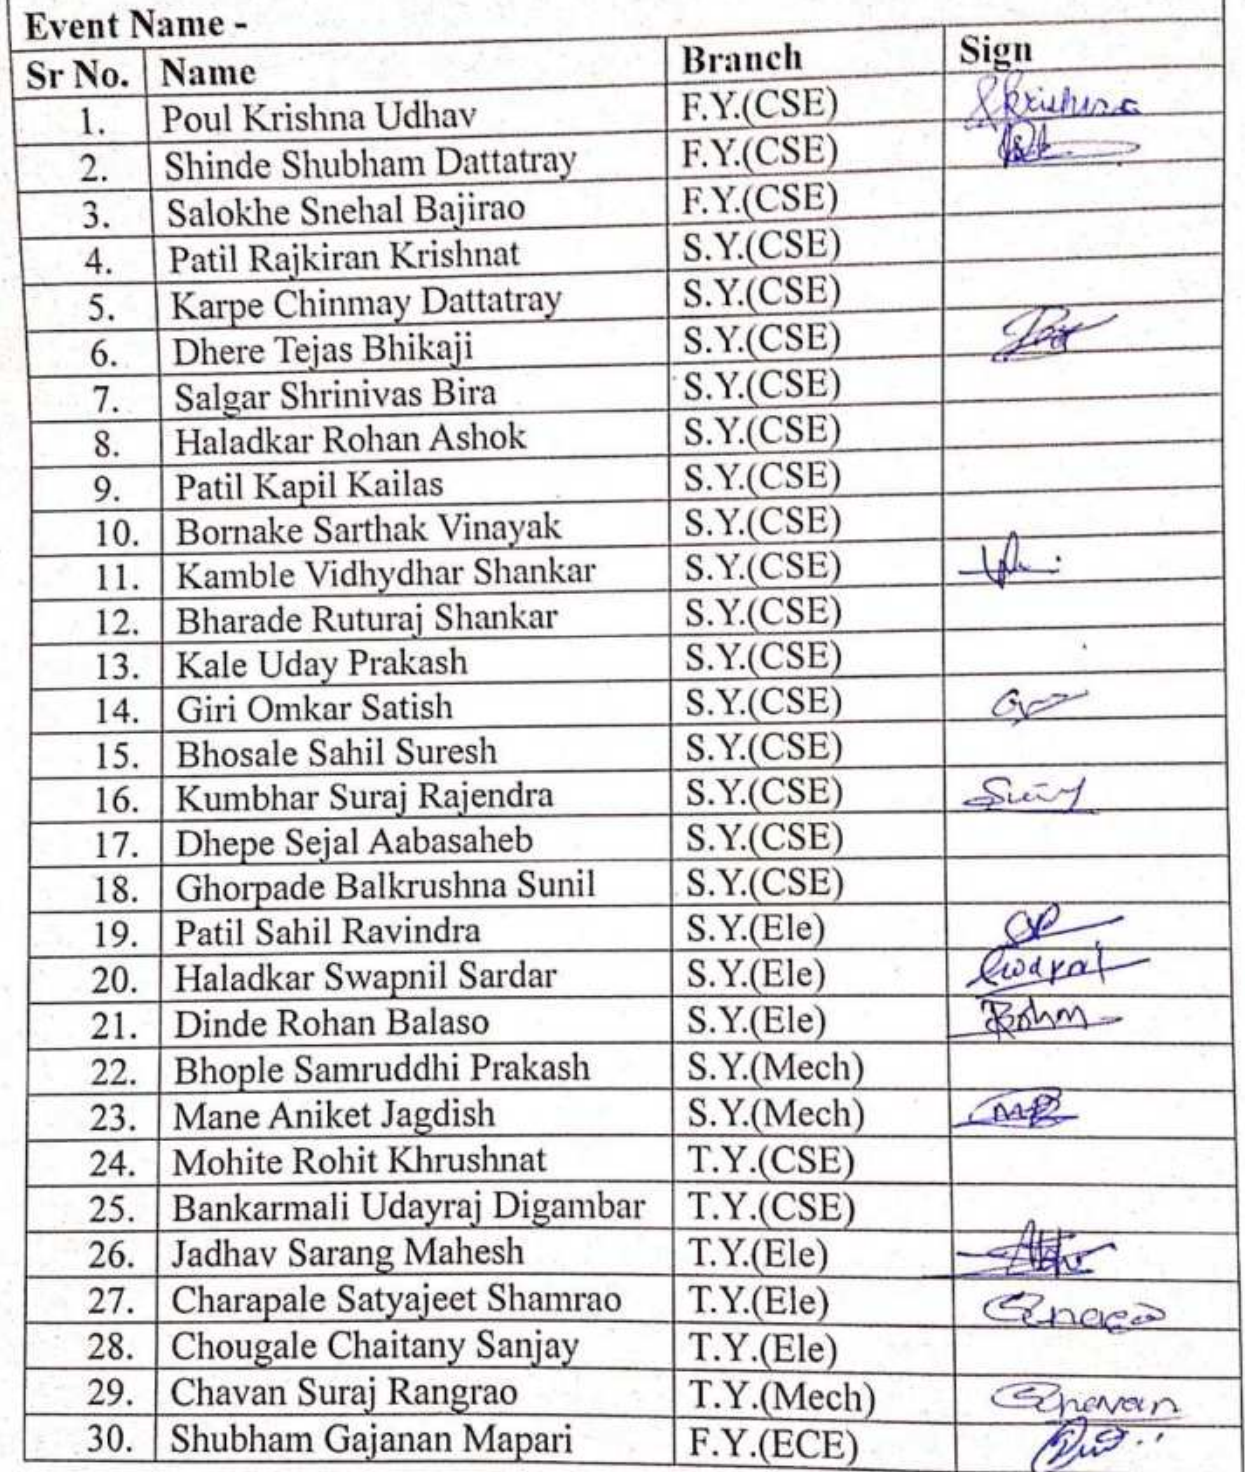 Event Name -
Sr No. Name Branch Sign
1. Poul Krishna Udhav F.Y.(CSE) Krishna
2. Shinde Shubham Dattatray F.Y.(CSE)
3. Salokhe Snehal Bajirao F.Y.(CSE)
4. Patil Rajkiran Krishnat S.Y.(CSE)
5. Karpe Chinmay Dattatray S.Y.(CSE)
6. Dhere Tejas Bhikaji S.Y.(CSE)
7. Salgar Shrinivas Bira S.Y.(CSE)
8. Haladkar Rohan Ashok S.Y.(CSE)
9. Patil Kapil Kailas S.Y.(CSE)
10. Bornake Sarthak Vinayak S.Y.(CSE)
11. Kamble Vidhydhar Shankar S.Y.(CSE)
12. Bharade Ruturaj Shankar S.Y.(CSE)
13. Kale Uday Prakash S.Y.(CSE)
14. Giri Omkar Satish S.Y.(CSE)
15. Bhosale Sahil Suresh S.Y.(CSE)
16. Kumbhar Suraj Rajendra S.Y.(CSE)
17. Dhepe Sejal Aabasaheb S.Y.(CSE)
18. Ghorpade Balkrushna Sunil S.Y.(CSE)
19. Patil Sahil Ravindra S.Y.(Ele)
20. Haladkar Swapnil Sardar S.Y.(Ele)
21. Dinde Rohan Balaso S.Y.(Ele)
22. Bhople Samruddhi Prakash S.Y.(Mech)
23. Mane Aniket Jagdish S.Y.(Mech)
24. Mohite Rohit Khrushnat T.Y.(CSE)
25. Bankarmali Udayraj Digambar T.Y.(CSE)
26. Jadhav Sarang Mahesh T.Y.(Ele)
27. Charapale Satyajeet Shamrao T.Y.(Ele)
28. Chougale Chaitany Sanjay T.Y.(Ele)
29. Chavan Suraj Rangrao T.Y.(Mech) Chavan
30. Shubham Gajanan Mapari F.Y.(ECE)